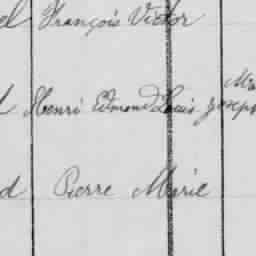 el François Victor
Ma
d Henri Edmond Louis Joseph
d Pierre Marie